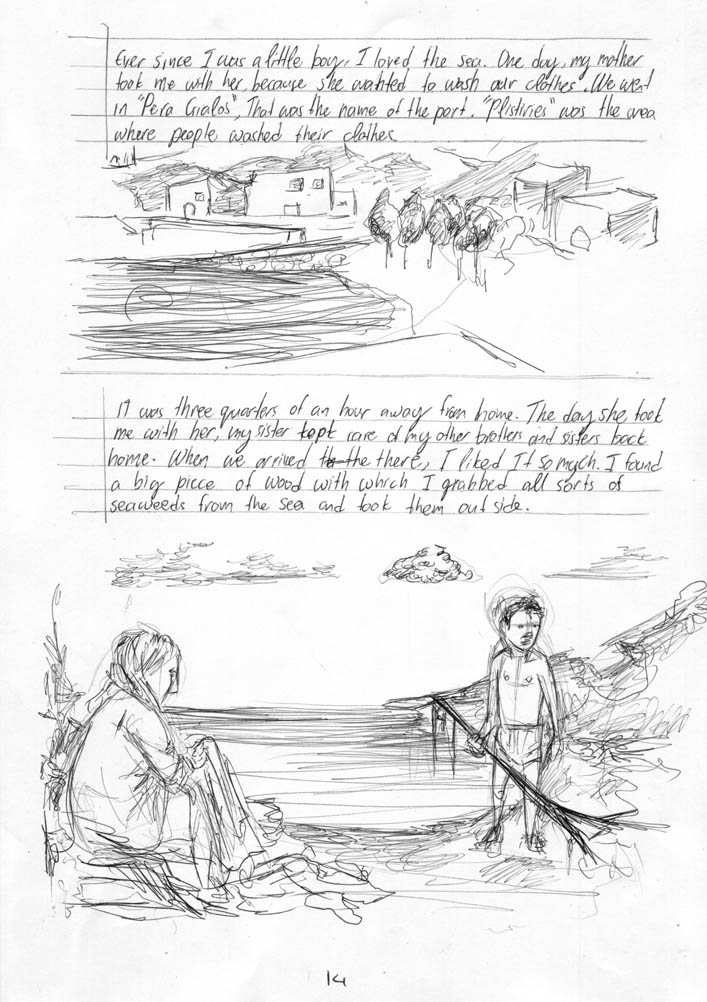 Ever since I was a little boy, I loved the sea. One day, my mother
took me with her, because she wanted to wash our clothes. We went
in "Pera Gialos", That was the name of the port. "Plistiries" was the area
where people washed their clothes
It was three quarters of an hour away from home. The day she, took
me with her, my sister kept care of my other brothers and sisters back
home. When we arrived the there, I liked It so much. I found
a big piece of wood with which I grabbed all sorts of
seaweeds from the sea and took them out side.
14